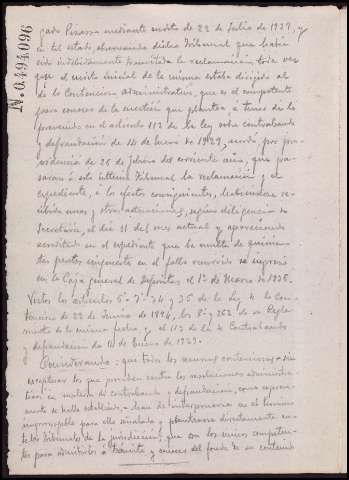 Nº 0.494.096
gado Pizarro mediante escrito de 22 de Julio de 1927, y
en tal estado, observando dicho Tribunal que había
sido indebidamente tramitada la reclamación, toda vez
que el escrito inicial de la misma estaba dirigido al
de lo Contencioso administrativo, que es el competente
para conocer de la cuestión que plantea, a tenor de lo
prevenido en el artículo 112 de la ley sobre contrabando
y defraudación de 14 de Enero de 1929, acordó por pro-
videncia de 26 de febrero del corriente año, que pa-
saran a este último Tribunal la reclamación y el
expediente, a los efectos consiguientes, habiéndose re-
cibido unas y otras actuaciones, según diligencia de
Secretaría, el día 11 del mes actual y apareciendo
acreditado en el expediente que la multa de quinien-
tas pesetas impuesta en el fallo recurrido se ingresó
en la Caja general de Depósitos el 1º de Marzo de 1926.
Vistos los artículos 5º 7º 34 y 35 de la Ley de lo Con-
tencioso de 22 de Junio de 1894, los 8º y 252 de su Regla-
mento de la misma fecha y el 112 de la de Contrabando
y defraudación de 14 de Enero de 1929.
Considerando: que todos los recursos contenciosos, sin
exceptuar los que procedan contra las resoluciones administra-
tivas en materia de contrabando y defraudación, como expresa-
mente se halla establecido, deben de interponerse en el término
improrrogable para ello señalado y plantearse directamente an-
te los Tribunales de la jurisdicción, que son los únicos competen-
tes para admitirlos a trámite y conocer del fondo de su contenido